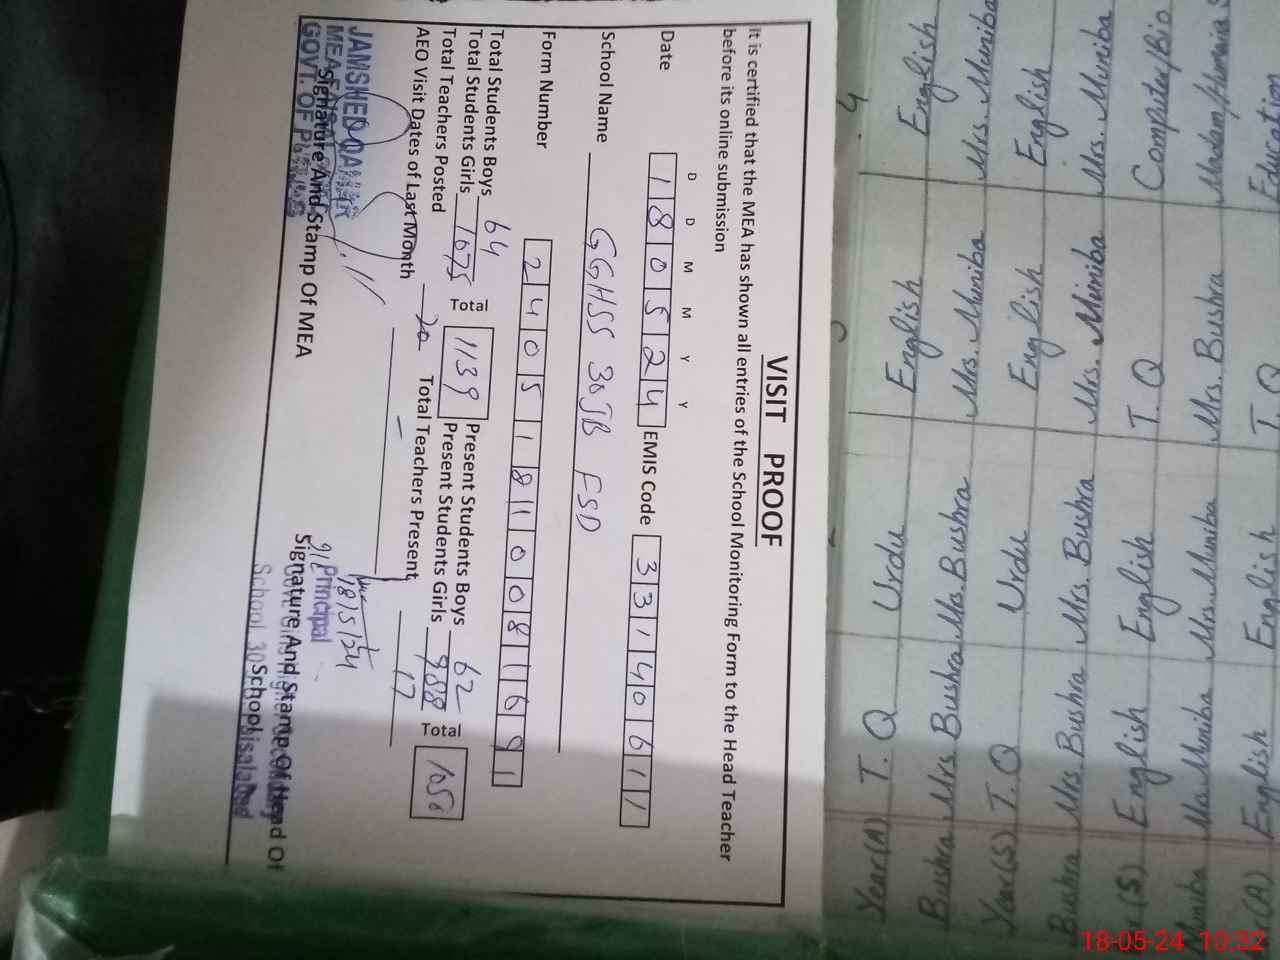 VISIT PROOF
It is certified that the MEA has shown all entries of the School Monitoring Form to the Head Teacher
before its online submission
D D M M Y Y
Date 180524 EMIS Code 33140611
School Name GGHSS 30JB FSD
Form Number
Total Students Boys 64 Total 1139 Present Students Boys 62 Total
Total Students Girls 1075 Present Students Girls 988
Total Teachers Posted 20 Total Teachers Present 17
AEO Visit Dates of Last Month
JAMSHED
MEA
GOVT. OF
Signature And Stamp Of MEA
18/5/24
Principal
Signature And Stamp Of Head Of
School
Year(A) T. Q Urdu English English
Bushra Mrs. Bushra Mrs. Bushra Mrs. Muniba Mrs. Muniba
Year(S) T. Q Urdu English English
Bushra Mrs. Bushra Mrs. Bushra Mrs. Muniba Mrs. Muniba
(S) English English T. Q Computer/Bio
Muniba Mrs. Muniba Mrs. Muniba Mrs. Bushra
(A) English English T. Q Education
18-05-24 10:32